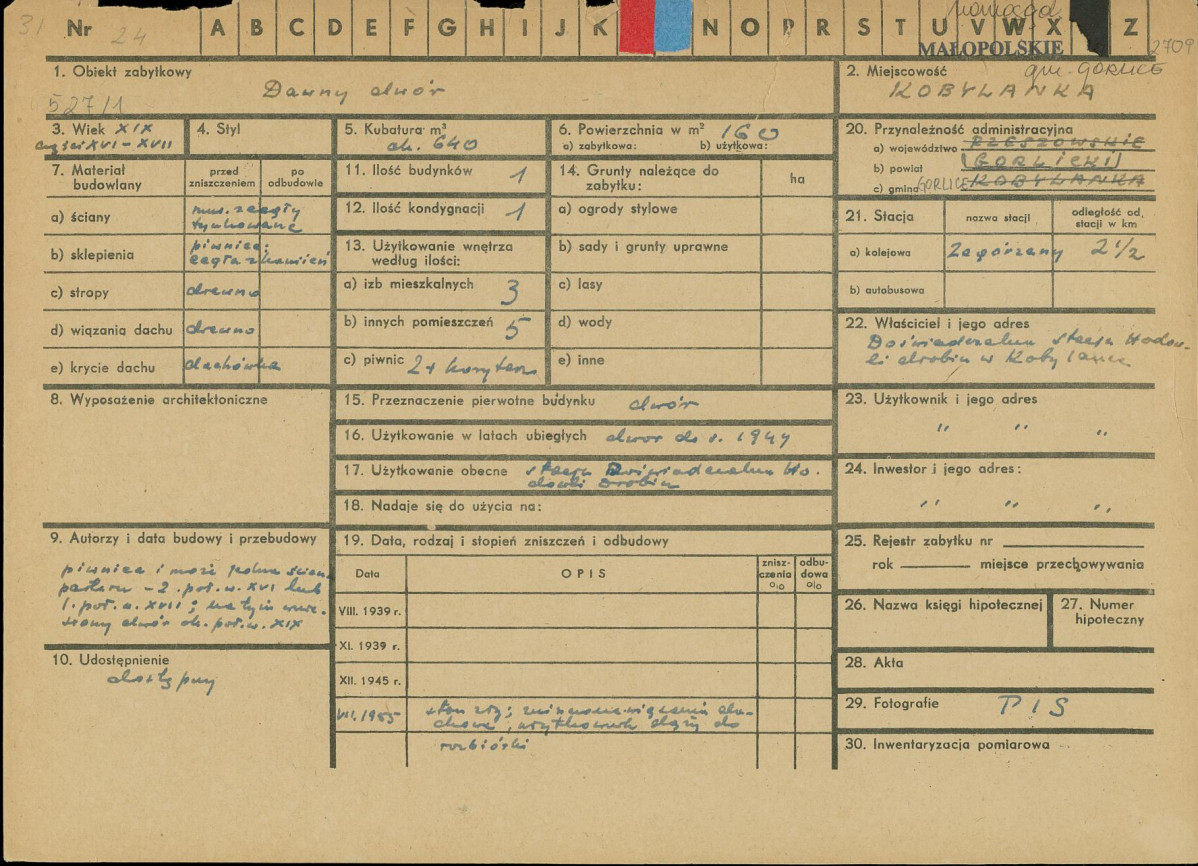 31
Nr 24
A B C D E F G H I J K N O P R S T U V W X Z
nowosąd
MAŁOPOLSKIE
2709
1. Obiekt zabytkowy
Dawny dwór
527/1
2. Miejscowość
gm. GORLICE
KOBYLANKA
3. Wiek XIX
części XVI – XVII
4. Styl
5. Kubatura m³
ok. 640
6. Powierzchnia w m² 160
a) zabytkowa: b) użytkowa:
20. Przynależność administracyjna
a) województwo RZESZOWSKIE
b) powiat (GORLICKI)
c) gmina GORLICE KOBYLANKA
7. Materiał budowlany
przed zniszczeniem
po odbudowie
a) ściany
mur. z cegły
tynkowane
b) sklepienia
piwnica:
cegła z kamień
c) stropy drewno
d) wiązania dachu drewno
e) krycie dachu dachówka
11. Ilość budynków 1
12. Ilość kondygnacji 1
13. Użytkowanie wnętrza
według ilości:
a) izb mieszkalnych 3
b) innych pomieszczeń 5
c) piwnic 2 + korytarz
14. Grunty należące do
zabytku:
ha
a) ogrody stylowe
b) sady i grunty uprawne
c) lasy
d) wody
e) inne
21. Stacja
nazwa stacji
odległość od
stacji w km
a) kolejowa Zagórzany 2 1/2
b) autobusowa
22. Właściciel i jego adres
Doświadczalna stacja Hodow-
li drobiu w Kobylance
8. Wyposażenie architektoniczne
15. Przeznaczenie pierwotne budynku dwór
16. Użytkowanie w latach ubiegłych dwór do r. 1944
17. Użytkowanie obecne stacja Doświadczalna Ho-
dowli Drobiu
18. Nadaje się do użycia na:
23. Użytkownik i jego adres
" " "
24. Inwestor i jego adres:
" " "
9. Autorzy i data budowy i przebudowy
piwnica i może jedna ścian
parteru – 2. poł. w. XVI lub
1. poł. w. XVII; na tym wznie-
siony dwór ok. poł. w. XIX
10. Udostępnienie
dostępny
19. Data, rodzaj i stopień zniszczeń i odbudowy
Data
OPIS
znisz-
czenia
%
odbu-
dowa
%
VIII. 1939 r.
XI. 1939 r.
XII. 1945 r.
VII. 1955
stan zły; zniszczone wiązania da-
chowe, użytkownik dąży do
rozbiórki
25. Rejestr zabytku nr
rok miejsce przechowywania
26. Nazwa księgi hipotecznej
27. Numer
hipoteczny
28. Akta
29. Fotografie PIS
30. Inwentaryzacja pomiarowa